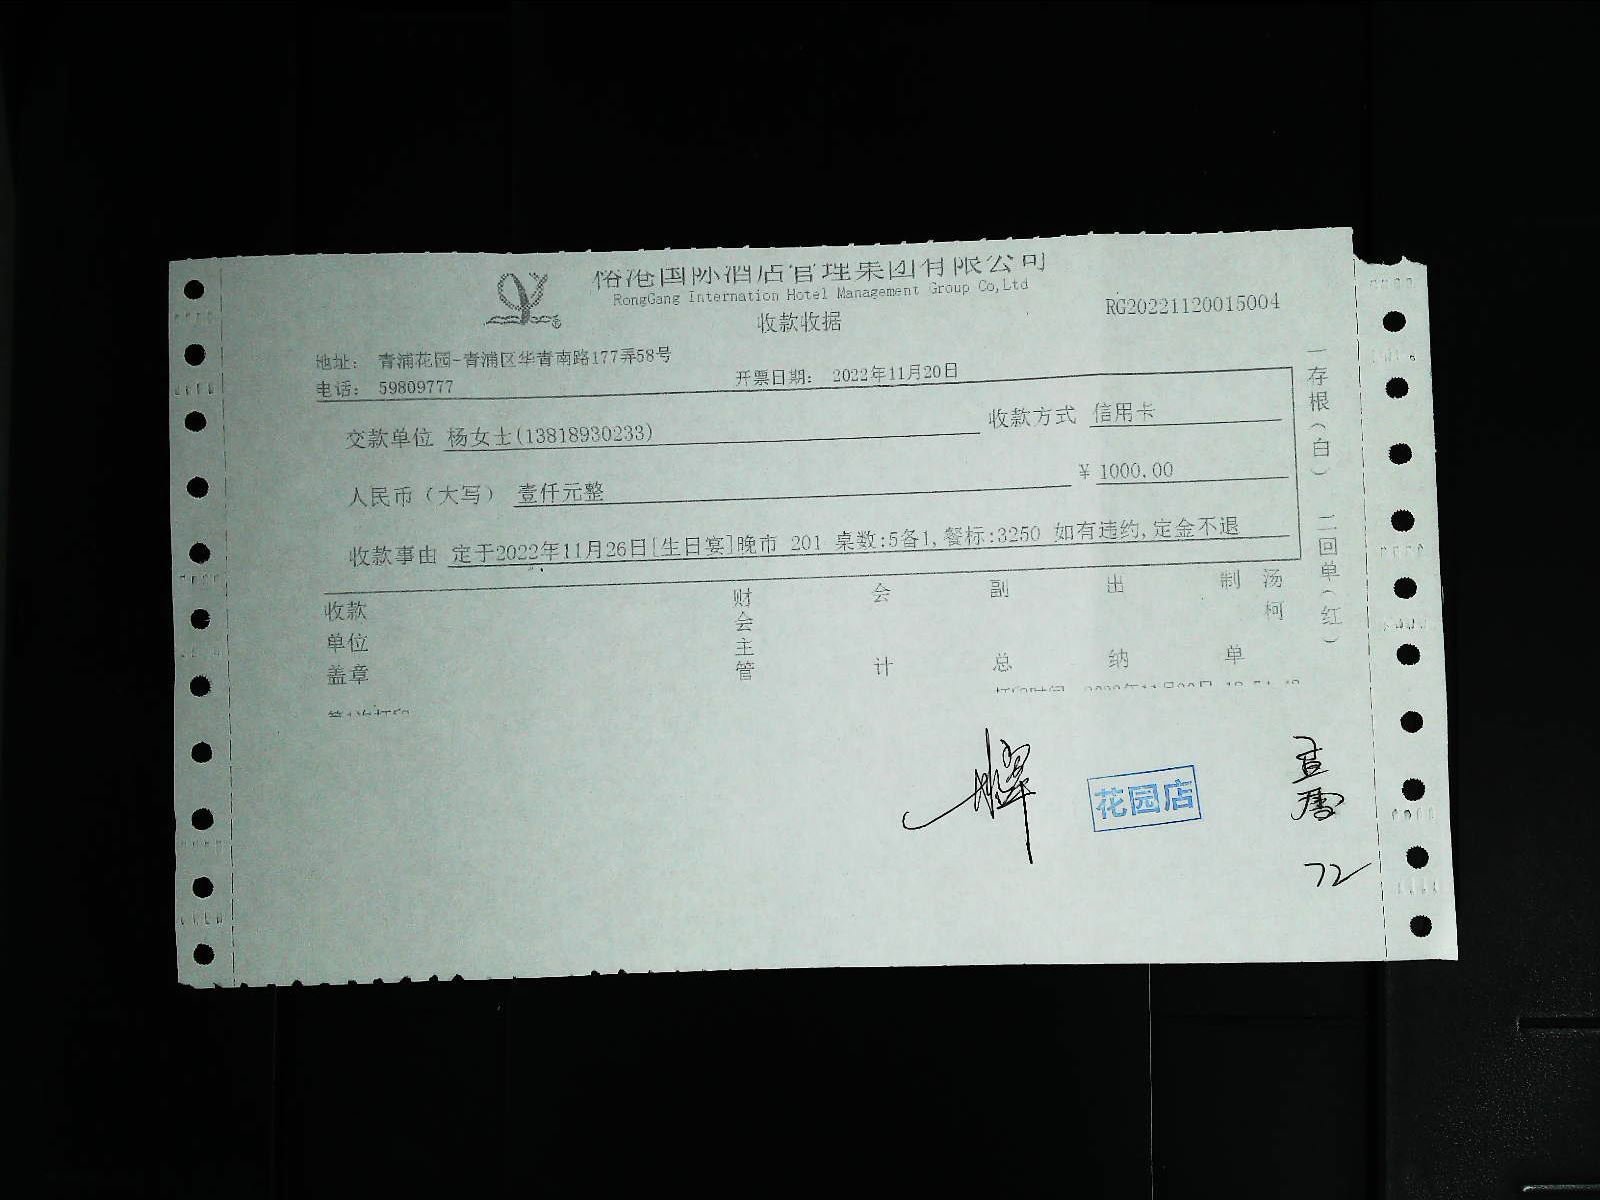 国际酒店管理集团有限公司
RongGang Internation Hotel Management Group Co,Ltd
收款收据
RG20221120015004
地址: 青浦花园-青浦区华青南路177弄58号
电话: 59809777
开票日期: 2022年11月20日
交款单位 杨女士(13818930233)
收款方式 信用卡
人民币（大写） 壹仟元整
¥ 1000.00
收款事由 定于2022年11月26日[生日宴]晚市 201 桌数:5备1,餐标:3250 如有违约,定金不退
一存根(白) 二回单(红)
收款单位盖章
财会主管
会计
副总
出纳
制单
汤柯
第1次打印
花园店
72